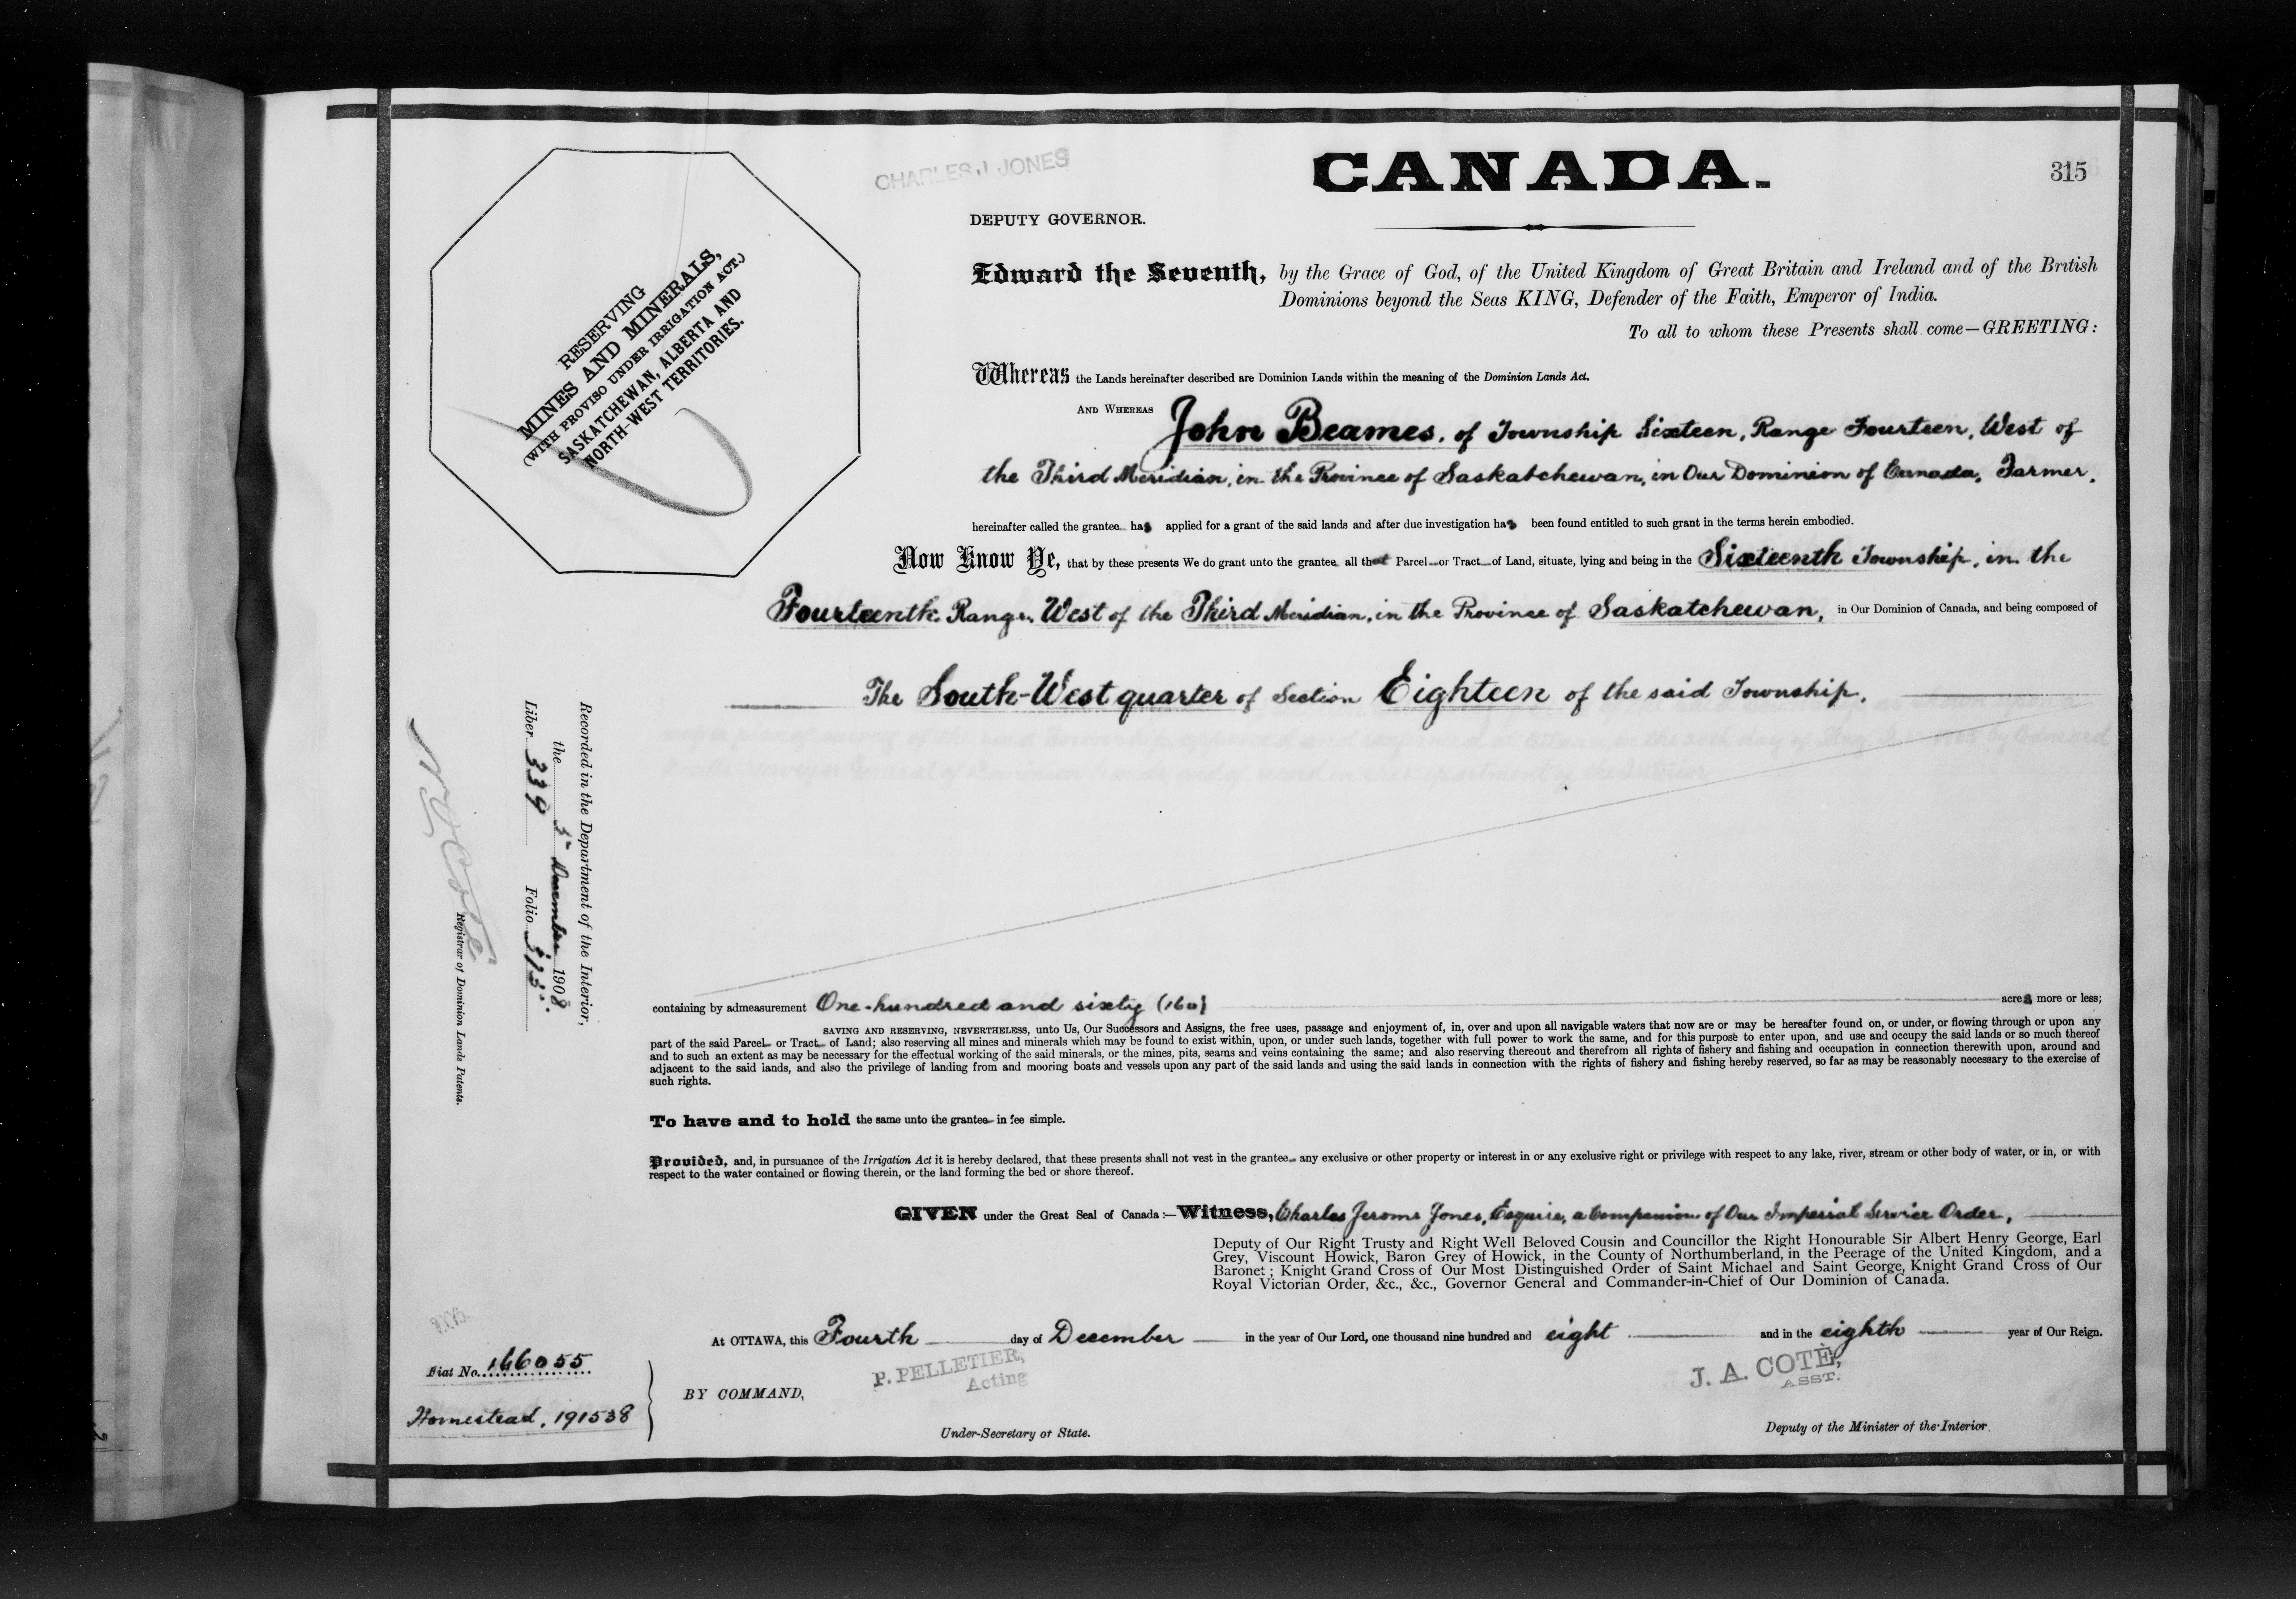 CHARLES J. JONES
CANADA.
315
DEPUTY GOVERNOR.
RESERVING
MINES AND MINERALS,
(WITH PROVISO UNDER IRRIGATION ACT.)
SASKATCHEWAN, ALBERTA AND
NORTH-WEST TERRITORIES.
Edward the Seventh, by the Grace of God, of the United Kingdom of Great Britain and Ireland and of the British
Dominions beyond the Seas KING, Defender of the Faith, Emperor of India.
To all to whom these Presents shall come—GREETING:
Whereas the Lands hereinafter described are Dominion Lands within the meaning of the Dominion Lands Act.
AND WHEREAS John Beames, of Township Sixteen, Range Fourteen, West of
the Third Meridian, in the Province of Saskatchewan, in Our Dominion of Canada, Farmer,
hereinafter called the grantee has applied for a grant of the said lands and after due investigation has been found entitled to such grant in the terms herein embodied.
Now Know Ye, that by these presents We do grant unto the grantee all that Parcel or Tract of Land, situate, lying and being in the Sixteenth Township, in the
Fourteenth Range, West of the Third Meridian, in the Province of Saskatchewan, in Our Dominion of Canada, and being composed of
The South-West quarter of Section Eighteen of the said Township.
Recorded in the Department of the Interior,
the 5th December 1908
Liber 339 Folio 315.
N. O. Coté
Registrar of Dominion Lands Patents.
containing by admeasurement One hundred and sixty (160) acres more or less;
SAVING AND RESERVING, NEVERTHELESS, unto Us, Our Successors and Assigns, the free uses, passage and enjoyment of, in, over and upon all navigable waters that now are or may be hereafter found on, or under, or flowing through or upon any
part of the said Parcel or Tract of Land; also reserving all mines and minerals which may be found to exist within, upon, or under such lands, together with full power to work the same, and for this purpose to enter upon, and use and occupy the said lands or so much thereof
and to such an extent as may be necessary for the effectual working of the said minerals, or the mines, pits, seams and veins containing the same; and also reserving thereout and therefrom all rights of fishery and fishing and occupation in connection therewith upon, around and
adjacent to the said lands, and also the privilege of landing from and mooring boats and vessels upon any part of the said lands and using the said lands in connection with the rights of fishery and fishing hereby reserved, so far as may be reasonably necessary to the exercise of
such rights.
To have and to hold the same unto the grantee in fee simple.
Provided, and, in pursuance of the Irrigation Act it is hereby declared, that these presents shall not vest in the grantee any exclusive or other property or interest in or any exclusive right or privilege with respect to any lake, river, stream or other body of water, or in, or with
respect to the water contained or flowing therein, or the land forming the bed or shore thereof.
GIVEN under the Great Seal of Canada:—Witness, Charles Jerome Jones, Esquire, a Companion of Our Imperial Service Order,
Deputy of Our Right Trusty and Right Well Beloved Cousin and Councillor the Right Honourable Sir Albert Henry George, Earl
Grey, Viscount Howick, Baron Grey of Howick, in the County of Northumberland, in the Peerage of the United Kingdom, and a
Baronet; Knight Grand Cross of Our Most Distinguished Order of Saint Michael and Saint George, Knight Grand Cross of Our
Royal Victorian Order, &c., &c., Governor General and Commander-in-Chief of Our Dominion of Canada.
At OTTAWA, this Fourth day of December in the year of Our Lord, one thousand nine hundred and eight and in the eighth year of Our Reign.
Fiat No. 166055
Homestead, 191538
BY COMMAND,
P. PELLETIER,
Acting
Under-Secretary of State.
J. A. COTÉ,
ASST.
Deputy of the Minister of the Interior.